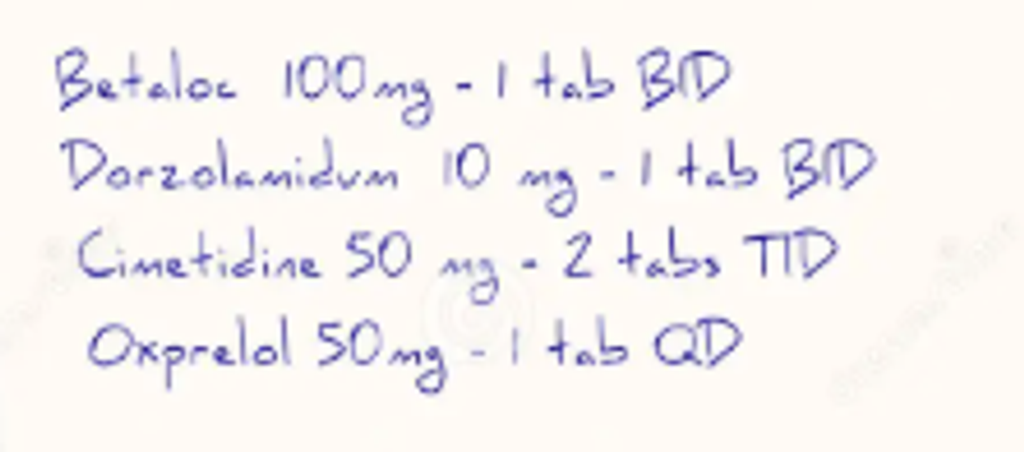 Betaloc 100mg - 1 tab BID
Dorzolamidum 10 mg - 1 tab BID
Cimetidine 50 mg - 2 tabs TID
Oxprelol 50mg - 1 tab QD